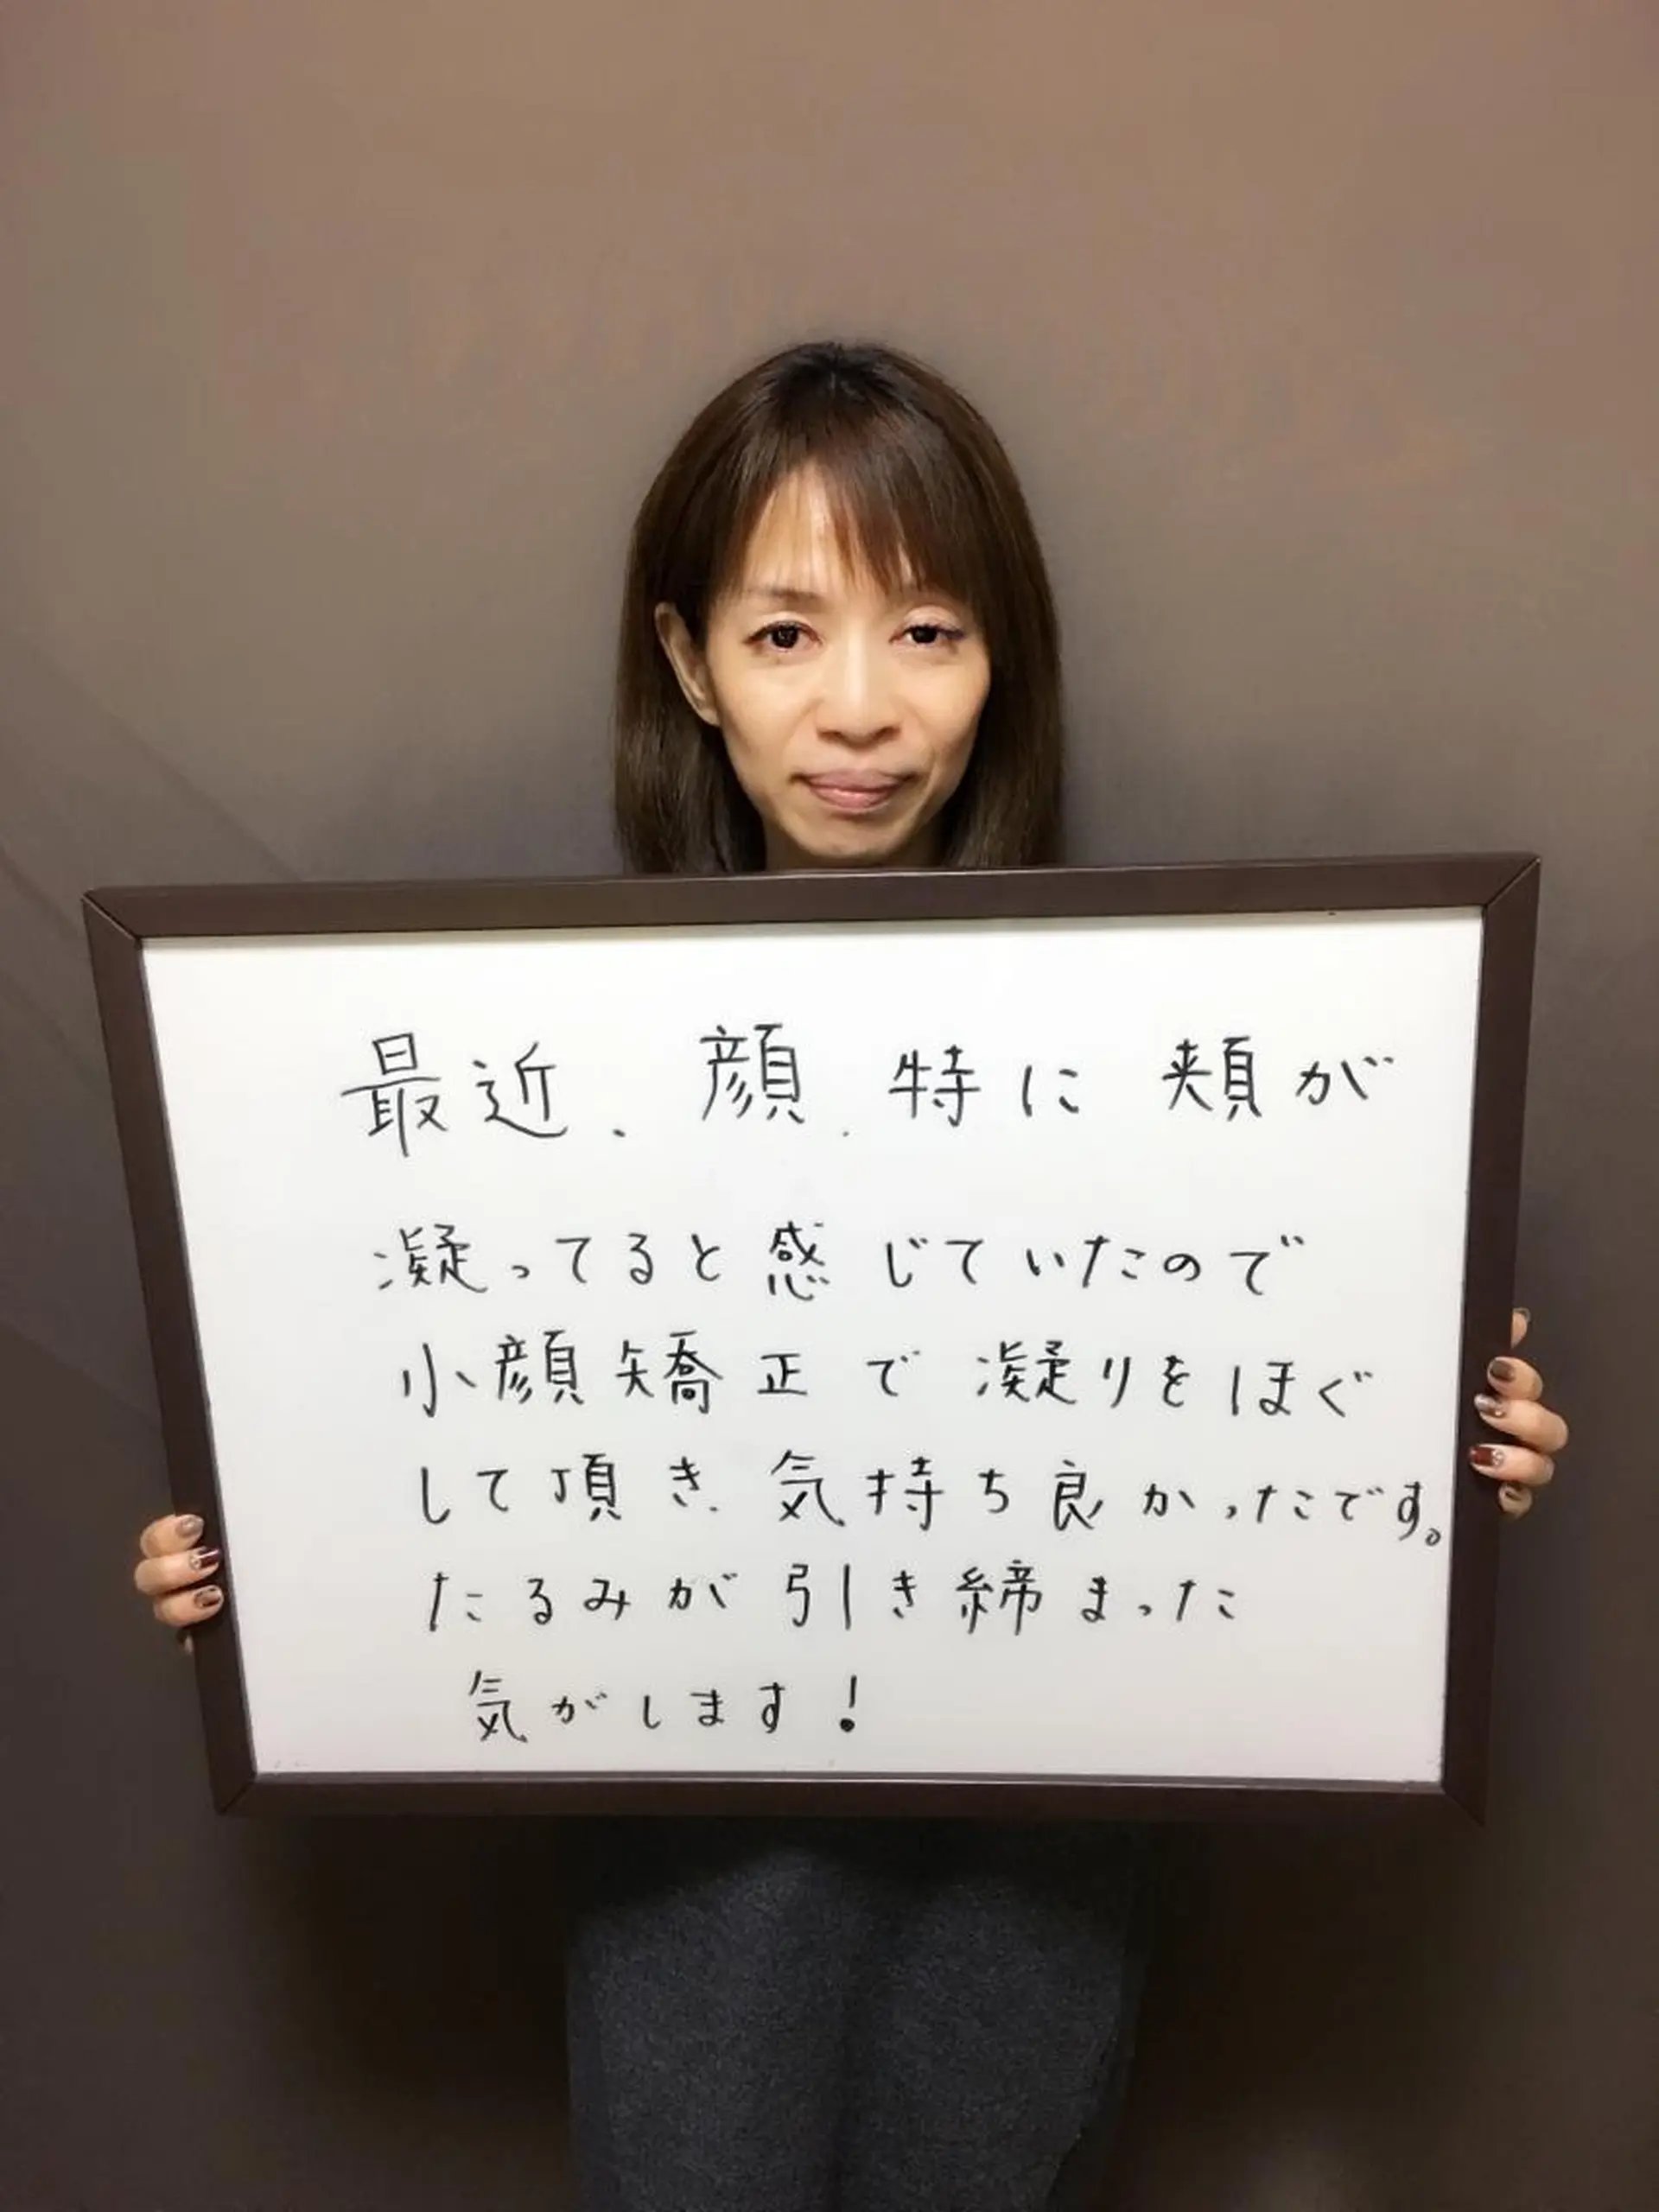 最近、顔、特に頬が
凝ってると感じていたので
小顔矯正で凝りをほぐ
して頂き、気持ち良かったです。
たるみが引き締まった
気がします!